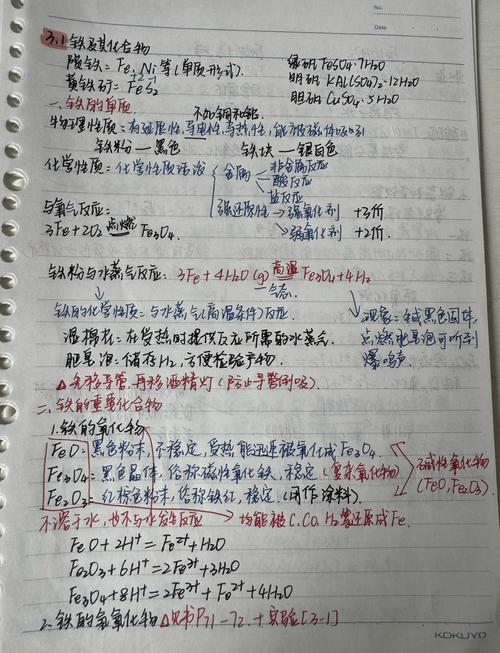 No.
Date
3.1 铁及其化合物
陨铁 = Fe, Ni 等 (单质形式)
绿矾 FeSO4·7H2O
黄铁矿 = FeS2
+2 -1
明矾 KAl(SO4)2·12H2O
胆矾 CuSO4·5H2O
一、铁的单质
不如铜和铝
物理性质 = 有延展性,导电性,导热性,能被磁体吸引
铁粉—黑色 铁块—银白色
化学性质 = 化学性质活泼
金属
非金属反应
酸反应
盐反应
强还原性
强氧化剂 +3价
弱氧化剂 +2价
与氧气反应:
3Fe+2O2 点燃 Fe3O4.
铁粉与水蒸气反应: 3Fe+4H2O(g) 高温 Fe3O4+4H2
铁的化学性质: 与水蒸气(高温条件)反应
现象 =
黑色固体,
湿棉花 = 在受热时提供反应所需的水蒸气
点燃肥皂泡可听到
爆鸣声
肥皂泡: 储存H2, 方便检验产物.
△先移导管,再移酒精灯 (防止导管倒吸)
二、铁的重要化合物
1. 铁的氧化物
FeO: 黑色粉末, 不稳定, 受热能迅速被氧化成Fe3O4.
Fe3O4 = 黑色晶体, 俗称磁性氧化铁, 稳定 (复杂氧化物)
碱性氧化物
(FeO,Fe2O3)
Fe2O3 = 红棕色粉末, 俗称铁红, 稳定 (用作涂料)
不溶于水, 也不与水发生反应 → 均能被C.CO.H2等还原成Fe.
FeO+2H+ = Fe2++H2O
Fe2O3+6H+ = 2Fe3++3H2O
Fe3O4+8H+ = 2Fe3++Fe2++4H2O
2. 铁的氢氧化物 △见书P71-72. + 实验[3-1]
KOKUYO